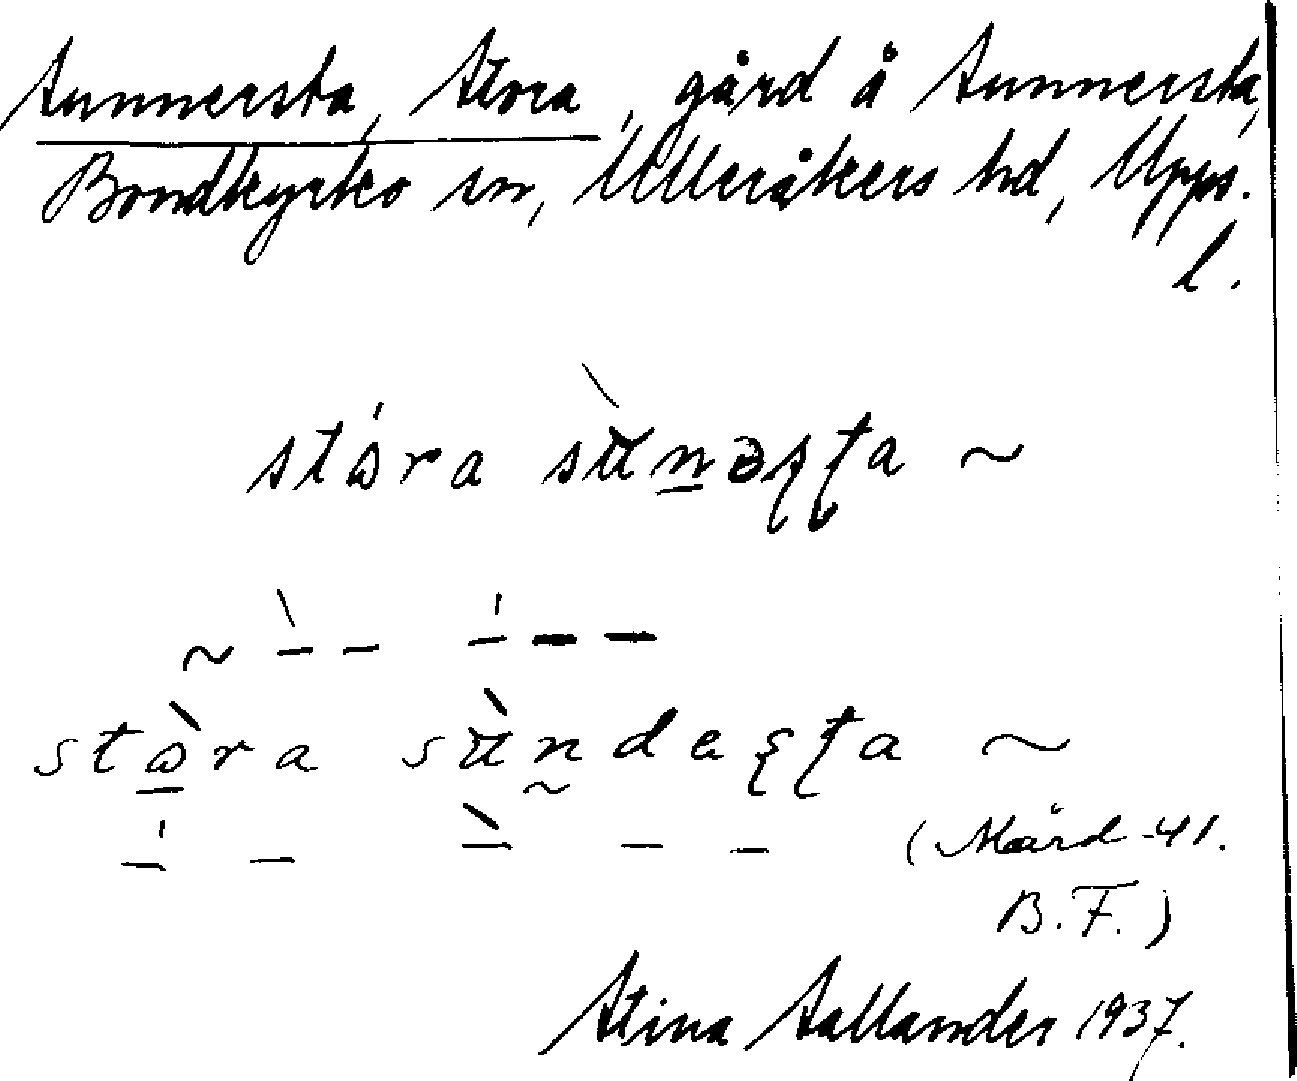 Sunnersta, Stora, gård å Sunnersta,
Bondkyrko sn, Ulleråkers hd, Upps.
l.
stɷ́ra sʉ̀n̲əʂʈa ~
~ ̀– – ́– – –
stɷ̲̀ra sʉ̀n̰deʂʈa ~
́– – ̀– – –
(Mård -41.
B.F.)
Stina Sallander 1937.